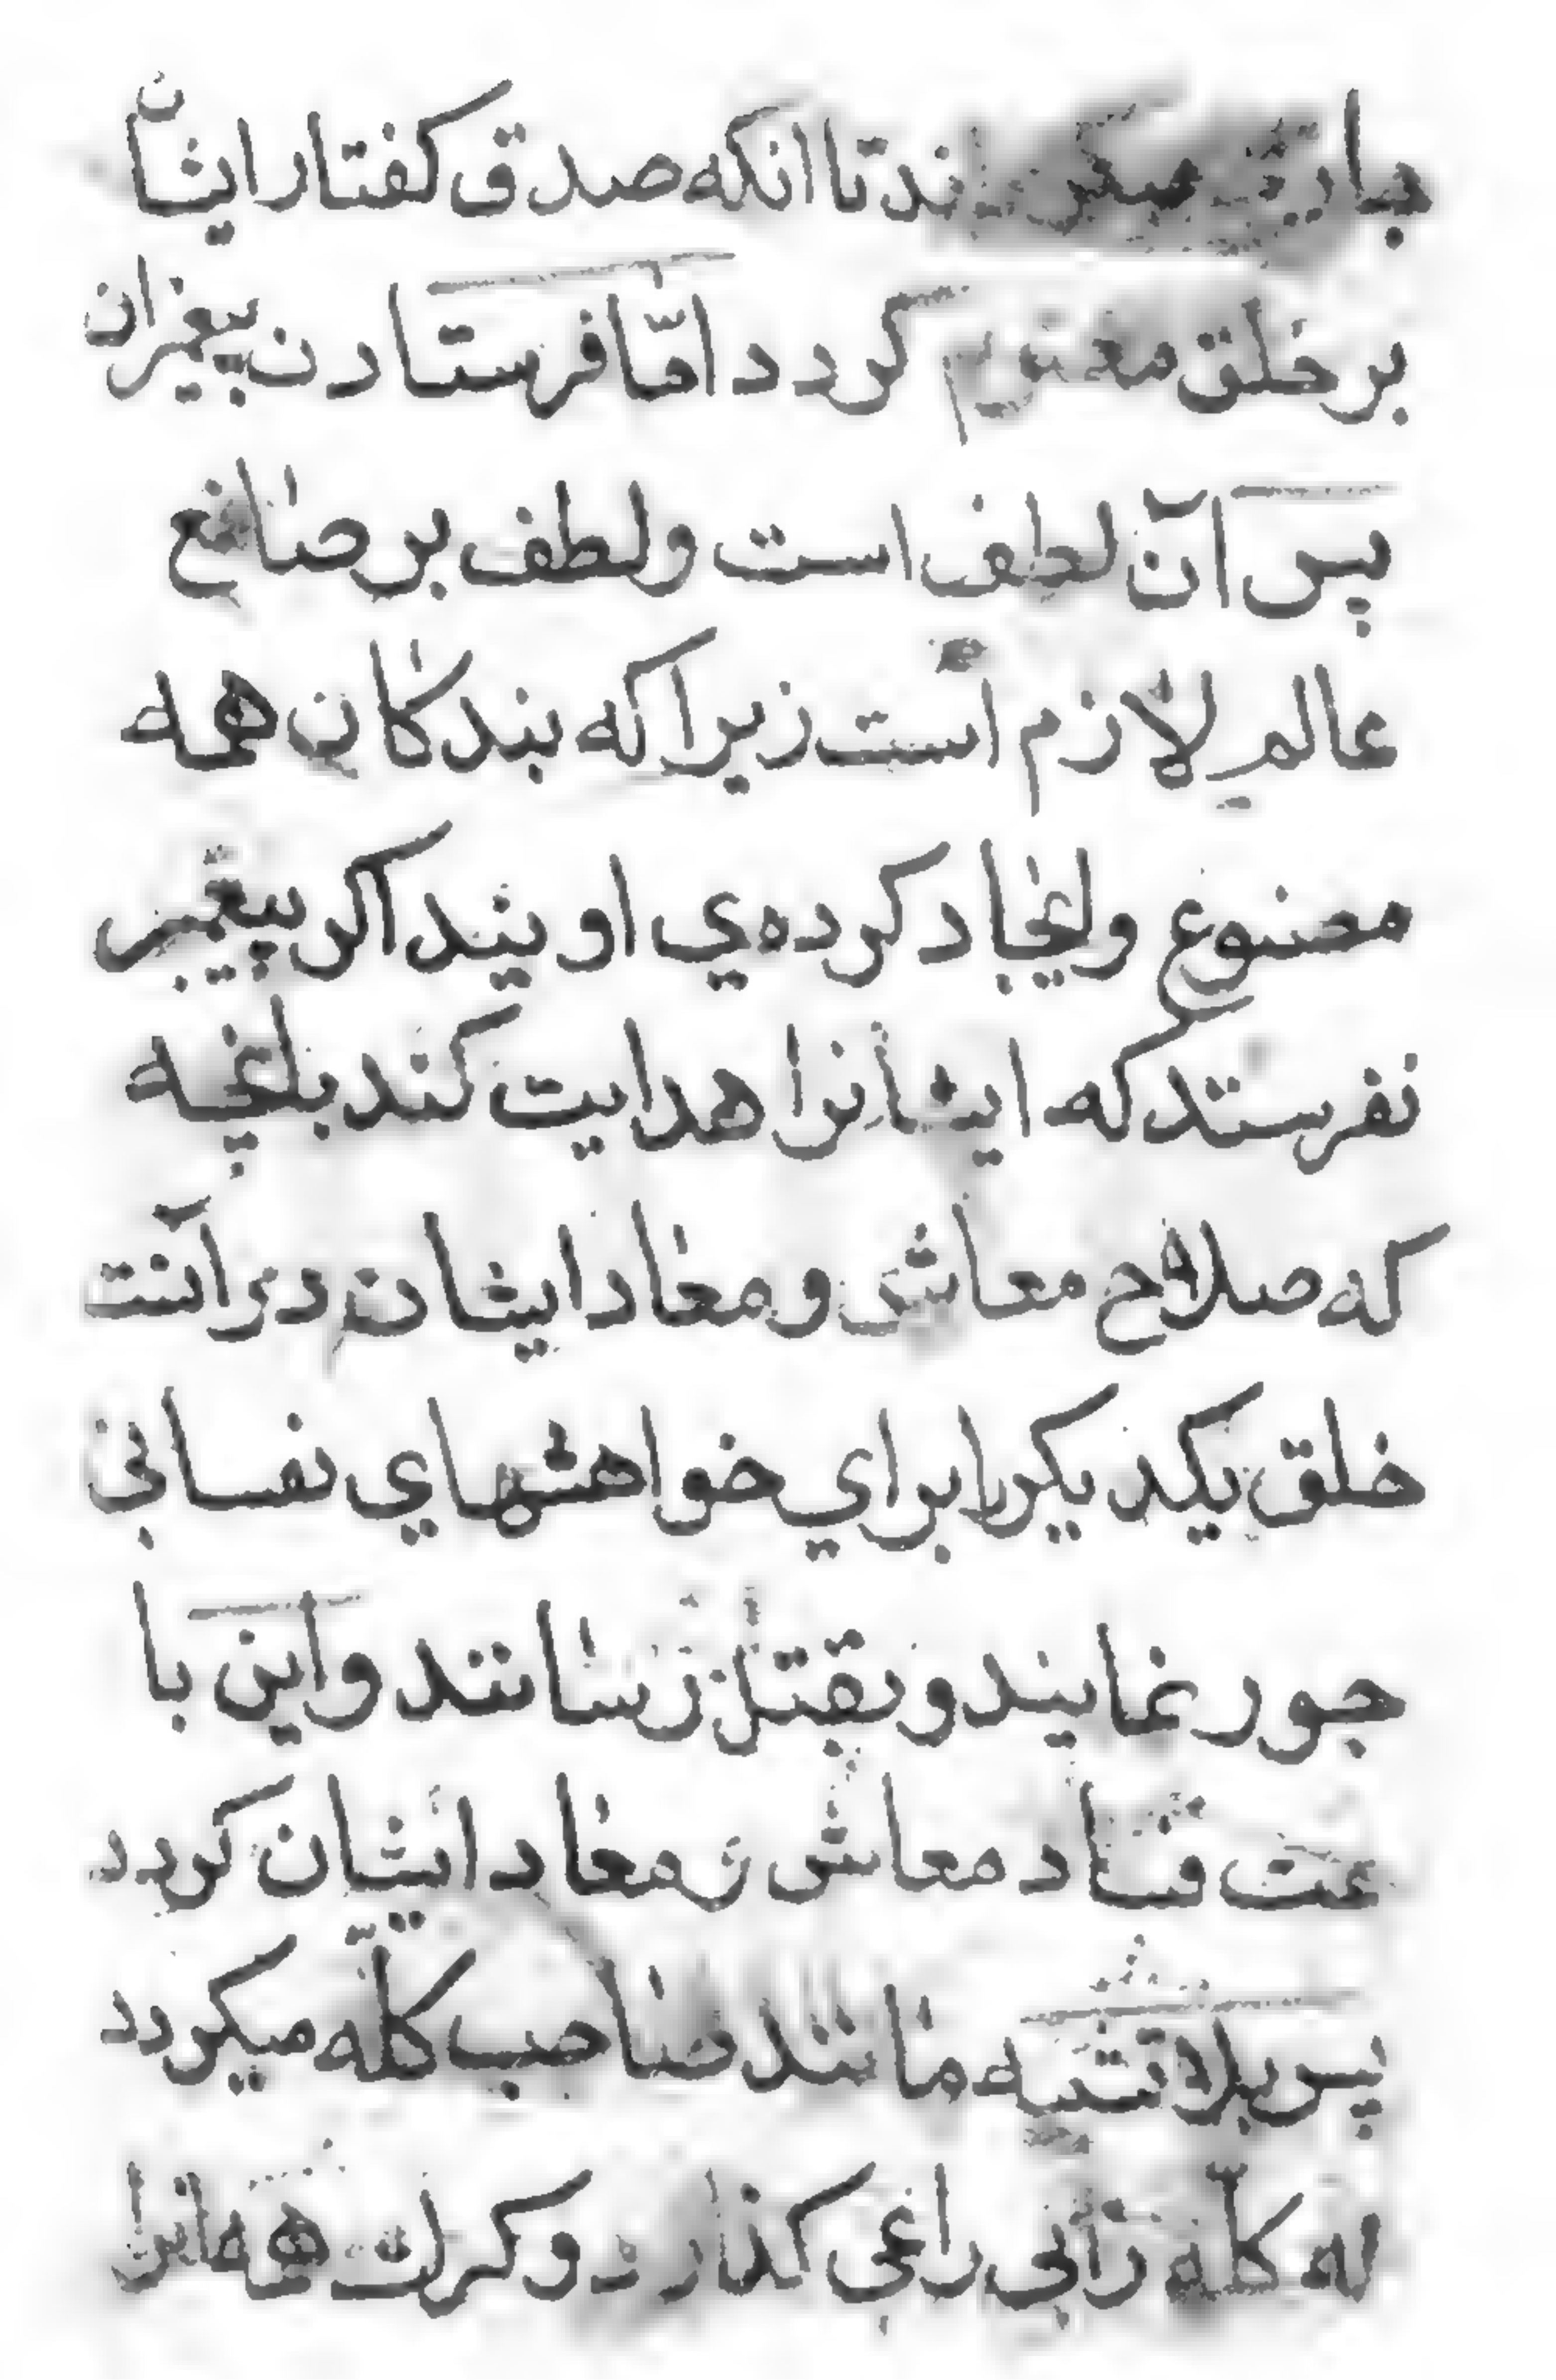 اند تا انکه صدق کفتار ایشان
بر خلق معلوم کردد امّا فرستادن پیغمبران
پس آن لطف است و لطف بر صانع
عالم لازم است زیرا که بندکان همه
مصنوع و ایجاد کرده ي او یند اکر پیغمبر
نفرستد که ایشانرا هدایت کند بانچه
که صلاح معاش و معاد ایشان در آنست
خلق یکدیکر را براي خواهشهاي نفسانی
جور نمایند و بقتل رسانند و این با
عث فساد معاش و معاد ایشان کردد
پس بلا تشبیه مانند صاحب کلّه میکردد
که کلّه را بی راعی کذارد و کرك همه انرا